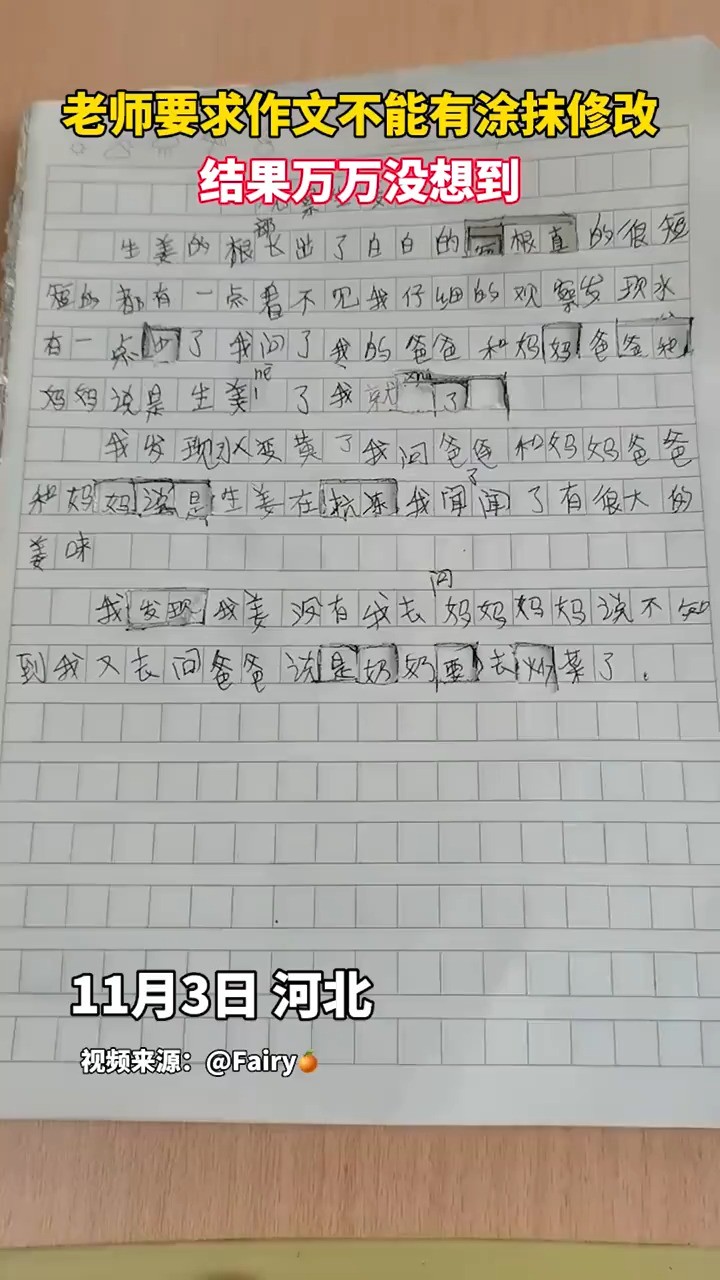 老师要求作文不能有涂抹修改
结果万万没想到
部
生姜的根长出了白白的根直的很短
短的都有一点看不见我仔细的观察发现水
有一点了我问了我的爸爸和妈妈爸爸和
nē
妈妈说是生姜了我就了
我发现水变黄了我问爸爸和妈妈爸爸
了
和妈妈说是生姜在我闻闻了有很大的
姜味
问
我发现我姜没有我去妈妈妈妈说不知
到我又去问爸爸说是奶奶要去炒菜了.
11月3日 河北
视频来源：@Fairy🍊